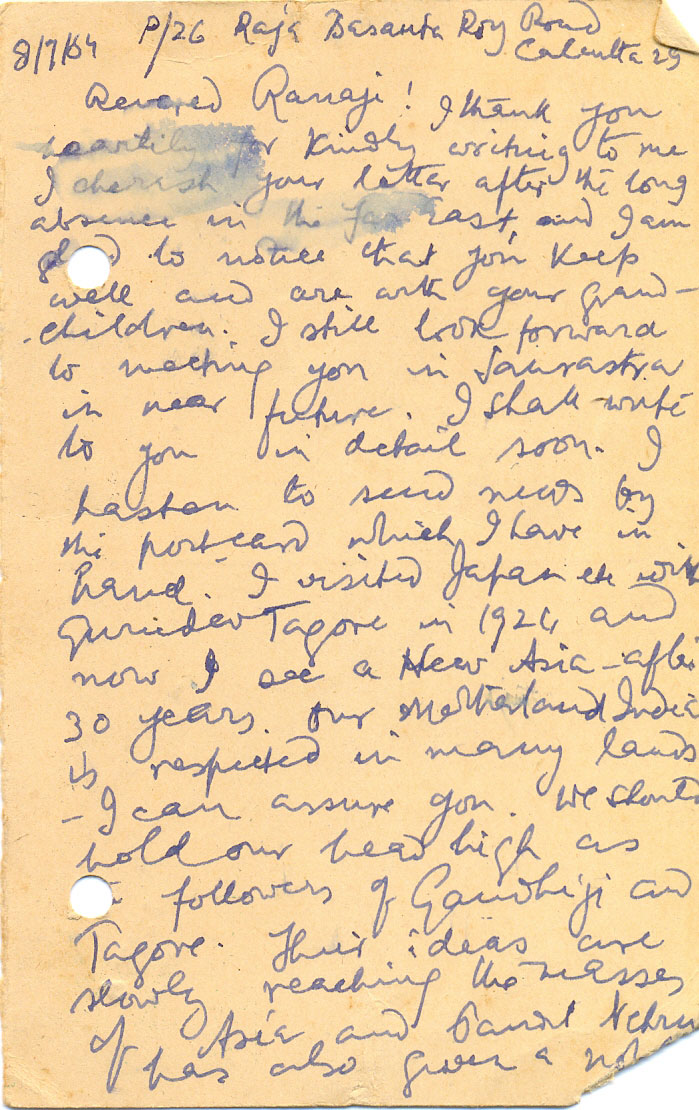 8/7/54 P/26 Raja Basanta Roy Road
Calcutta 29
Revered Ranaji! I thank you
heartily for kindly writing to me
I cherish your letter after the long
absence in the Far East, and I am
to notice that you keep
well and are with your grand-
-children. I still look forward
to meeting you in Saurastra
in near future. I shall write
to you in detail soon. I
hasten to send news by
the postcard which I have in
hand. I visited Japan etc with
Gurudev Tagore in 1924 and
now I see a New Asia - after
30 years. Our Motherland India
is respected in many lands
- I can assure you. We should
hold our head high as
followers of Gandhiji and
Tagore. Their ideas are
slowly reaching the masses
of Asia and Pandit Nehru
has also given a